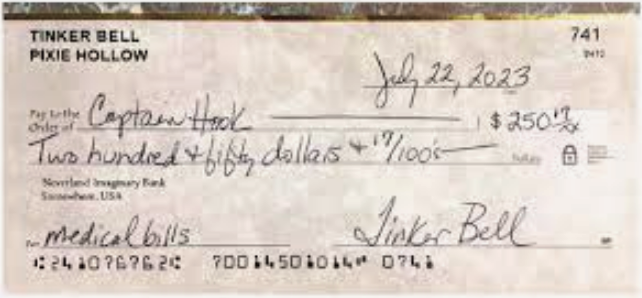 TINKER BELL 741
PIXIE HOLLOW
July 22, 2023
Pay to the
Order of Captain Hook $ 250 17/xx
Two hundred + fifty dollars + 17/100's
Neverland Imaginary Bank
Somewhere, USA
medical bills Tinker Bell
⑆241076762⑆ 7001450101⑈ 0741